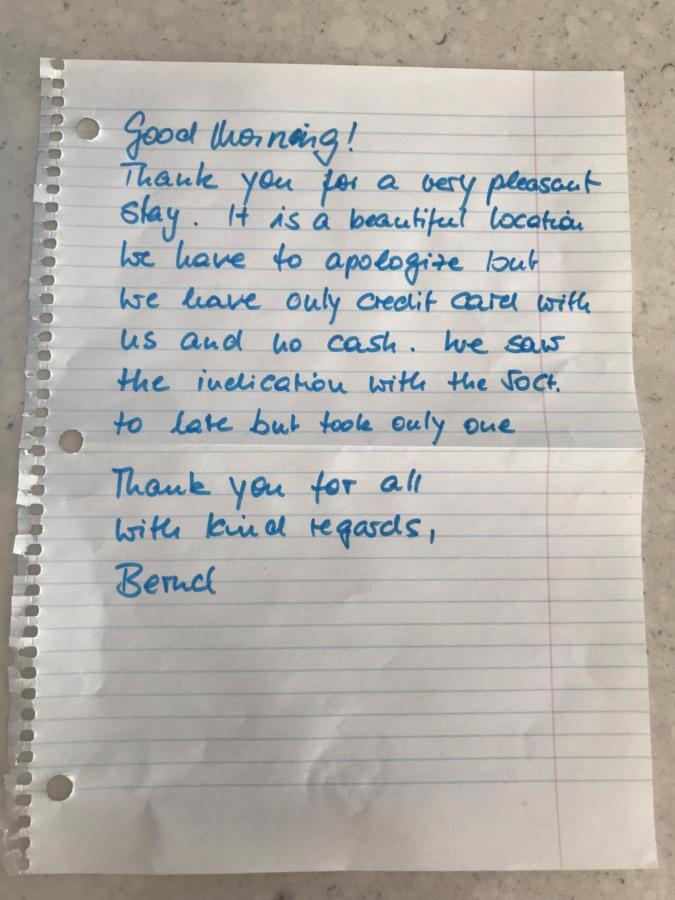 Good Morning!
Thank you for a very pleasant
stay. It is a beautiful location
We have to apologize but
We have only credit card with
us and no cash. We saw
the indication with the
to late but took only one
Thank you for all
with kind regards,
Bernd